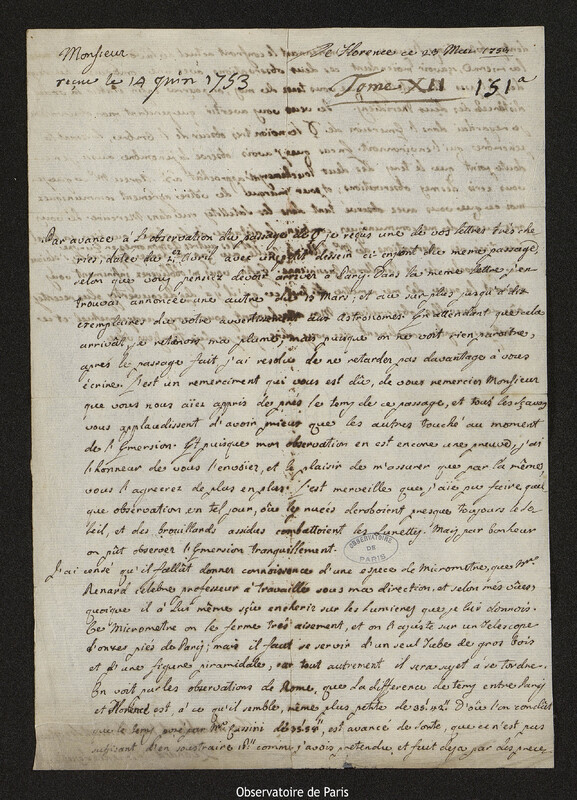 Monsieur De Florence ce 23 Mai 1753
reçue le 14 Juin 1753 Tome XII 151a
Par avance à l'observation du passage de ☿ je reçus une de vos lettres tres che
ries, datée du 2 Avril avec un petit dessein ci enjont du meme passage,
selon que vous pensiez devoir arriver à Paris. Dans la meme lettre, j'en
trouvas annoncée une autre du 17 Mars; et au sur plus jusqu'à dix
exemplaires du votre avertissement aux Astronomes. En attendant que cela
arrivât, je retenois ma plume, mais puisque on ne voit rien paraitre,
après le passage fait, j'ai resolu de ne retarder pas davantage à vous
écrire. C'est un remerciment qui vous est dû, de vous remercier Monsieur
que vous nous aiez appris de près le tems de ce passage, et tous les sçavans
vous applaudissent d'avoir mieux que les autres touché au moment
de l'Emersion. Et puisque mon observation en est encore une preuve, j'ai
l'honneur de vous l'envoïer, et le plaisir de m'assurer que par la même,
vous l'agreerez de plus en plus. C'est merveille que j'aie pu faire quel
que observation en tel jour, où les nuées deroboient presque toujours le So
leil, et des brouillards assidus combattoient les Lunettes. Mais par bonheur
on pût observer l'Emersion tranquillement.
J'ai censé qu'il falloit donner connoissance d'une espece de Micrometre, que Mr.
Renard celebre professeur à travaillé sous ma direction, et selon mes vües,
quoique il à lui même sçu encherir sur les lumieres que je lui donnois.
Ce Micrometre on le ferme très aisement, et on l'ajuste sur un Telescope
d'onze piés de Paris; mais il faut se servir d'un seul Tube de gros bois
et d'une figure piramidale, car tout autrement il sera sujet à se tordre.
On voit par les observations de Rome, que la difference de tems entre Paris
et Florence est, à ce qu'il semble, même plus petite de
que le tems par Mr. Cassini de est avancé de sorte, que ce n'est pas
sufisant d'en soustraire 18" comme j'avois pretendu, et fait deja par des prece
OBSERVATOIRE DE PARIS
Observatoire de Paris